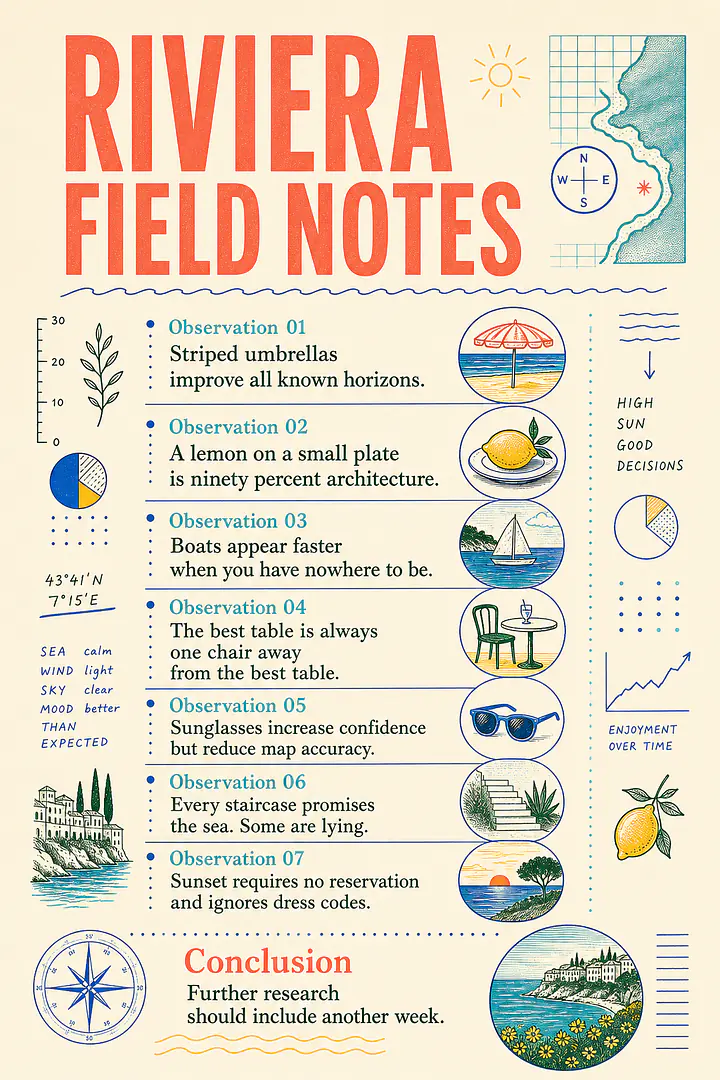 RIVIERA
FIELD NOTES
N
W E
S
30
20
10
0
Observation 01
Striped umbrellas
improve all known horizons.
Observation 02
A lemon on a small plate
is ninety percent architecture.
Observation 03
Boats appear faster
when you have nowhere to be.
Observation 04
The best table is always
one chair away
from the best table.
Observation 05
Sunglasses increase confidence
but reduce map accuracy.
Observation 06
Every staircase promises
the sea. Some are lying.
Observation 07
Sunset requires no reservation
and ignores dress codes.
43°41'N
7°15'E
SEA calm
WIND light
SKY clear
MOOD better
THAN
EXPECTED
HIGH
SUN
GOOD
DECISIONS
ENJOYMENT
OVER TIME
Conclusion
Further research
should include another week.